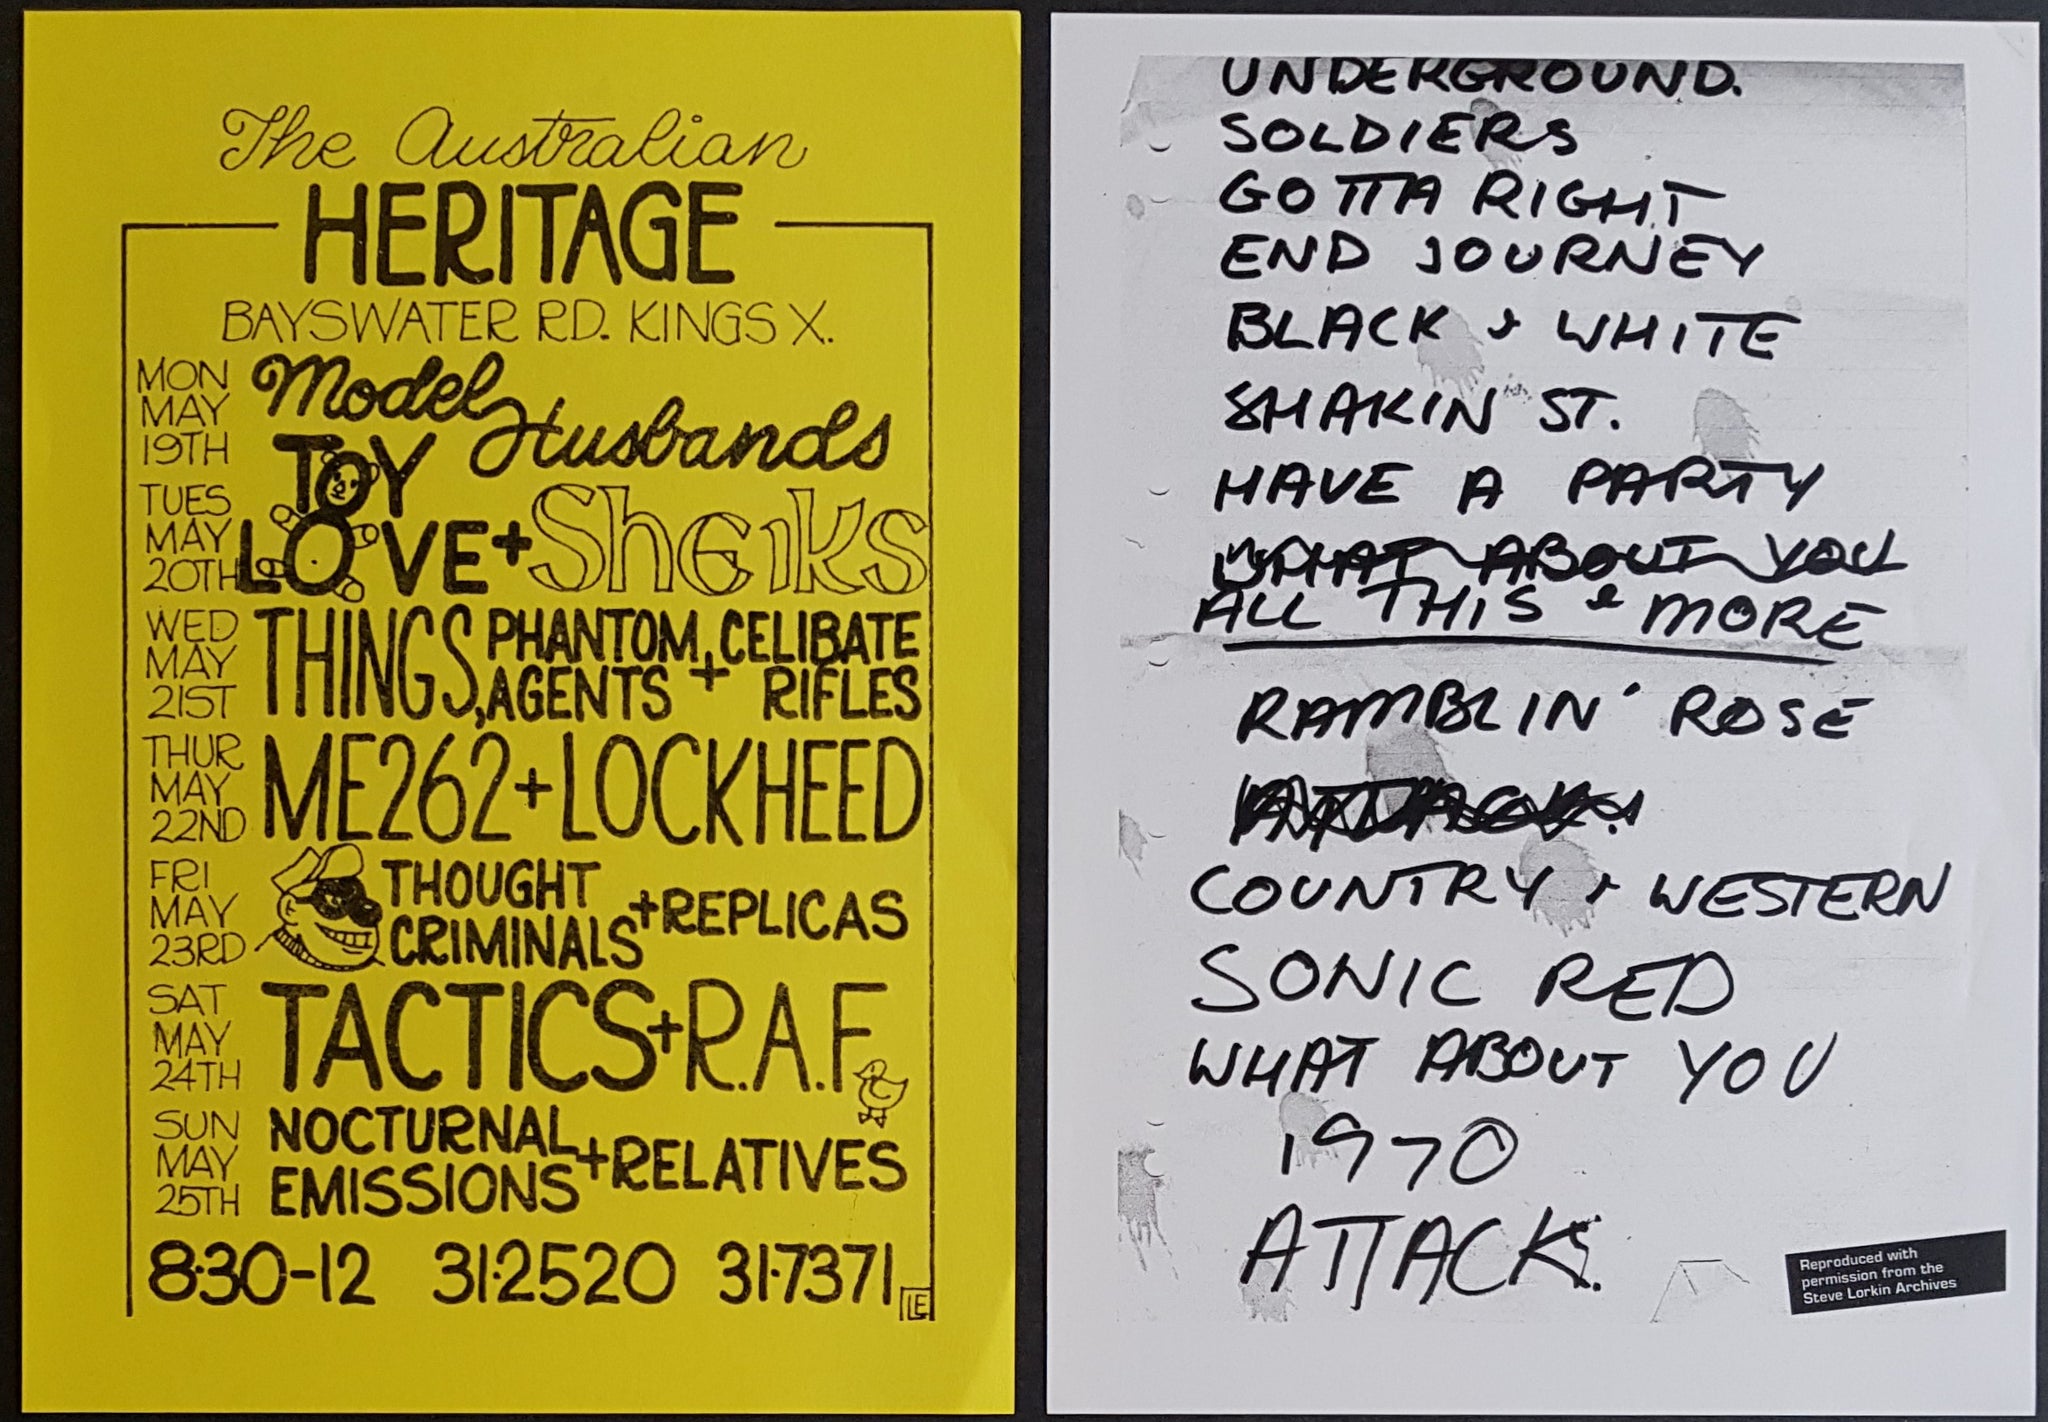 The Australian
HERITAGE
BAYSWATER RD. KINGS X.
MON
MAY
19TH
Model Husbands
TUES
MAY
20TH
TOY
LOVE + Sheiks
WED
MAY
21ST
THINGS, PHANTOM AGENTS + CELIBATE RIFLES
THUR
MAY
22ND
ME262 + LOCKHEED
FRI
MAY
23RD
THOUGHT CRIMINALS + REPLICAS
SAT
MAY
24TH
TACTICS + R.A.F
SUN
MAY
25TH
NOCTURNAL EMISSIONS + RELATIVES
8·30-12 31·2520 31·7371
LE
UNDERGROUND.
SOLDIERS
GOTTA RIGHT
END JOURNEY
BLACK & WHITE
SHAKIN ST.
HAVE A PARTY
WHAT ABOUT YOU
ALL THIS & MORE
RAMBLIN' ROSE
COUNTRY & WESTERN
SONIC RED
WHAT ABOUT YOU
1970
ATTACK.
Reproduced with
permission from the
Steve Lorkin Archives